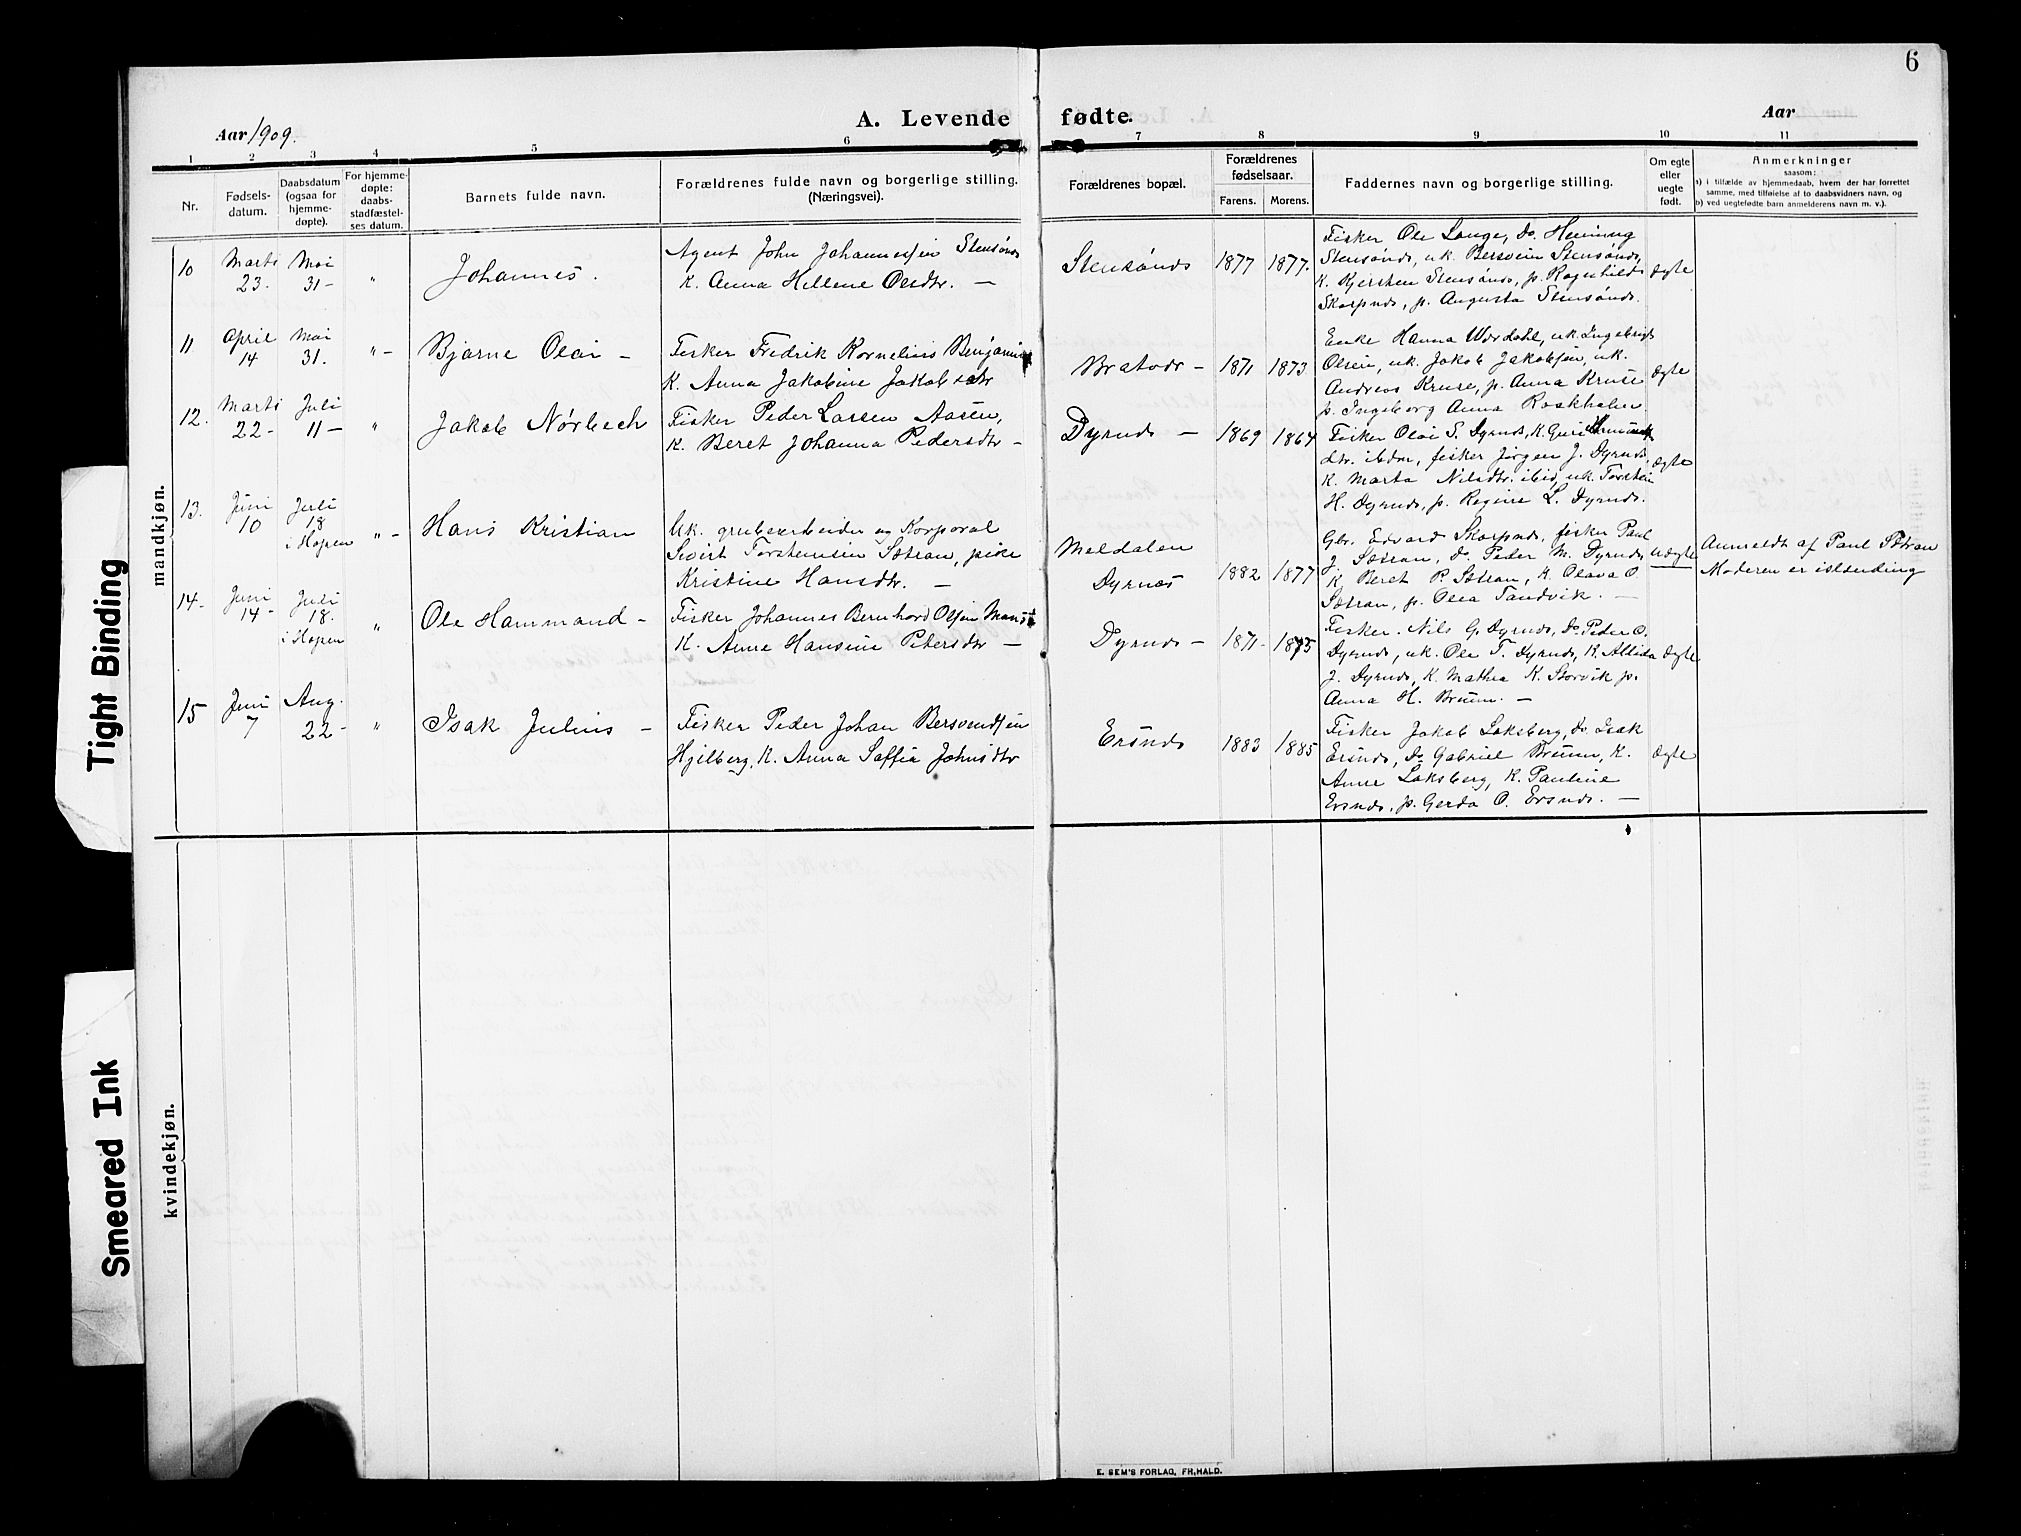 6
Aar 1909.
A. Levende fødte.
Aar
1 2 3 4 5 6 7 8 9 10 11
Nr.
Fødsels-
datum.
Daabsdatum
(ogsaa for
hjemme-
døpte).
For hjemme-
døpte:
daabs-
stadfæstel-
ses datum.
Barnets fulde navn.
Forældrenes fulde navn og borgerlige stilling.
(Næringsvei).
Forældrenes bopæl.
Forældrenes
fødselsaar.
Farens. Morens.
Faddernes navn og borgerlige stilling.
Om egte
eller
uegte
født.
Anmerkninger
saasom:
a) i tilfælde av hjemmedaab, hvem der har forrettet
samme, med tilføielse af to daabsvidners navn, og
b) ved uegtefødte barn anmelderens navn m. v.).
mandkjøn.
10
Marts
23.
Mai
31-
"
Johannes.
Agent John Johannessen Stensønds
K. Anna Hellene Olsdtr. —
Stensønds
1877 1877.
Fisker Ole Lange, do. Henning
Stensønds, uk. Bersvein Stensønds,
K. Kjersten Stensønds, p. Ragnhild
Skarpnds, p. Augusta Stensønds.
Ægte
11
April
14
Mai
31.
" -
Bjarne Olai —
Fisker Fredrik Kornelius Benjamins
K. Anna Jakobine Jakobsdtr
Bratvær —
1871 1873
Enke Hanna Werdahl, uk. Ingebrigt
Olsen, uk. Jakob Jakobsen, uk.
Andreas Kruse, p. Anna Kruse
p. Ingeborg Anna Roskholm.
Ægte
12.
Marts
22-
Juli
11—
"
Jakob Nørbech
Fisker Peder Larsen Aasen,
K. Beret Johanna Pedersdtr —
Dyrnds —
1869 1864
Fisker Olai S. Dyrnds, K. Guri
dtr. ibdm, fisker Jørgen J. Dyrnds,
K. Marta Nilsdtr. ibid, uk. Torstein
H. Dyrnds, p. Regine L. Dyrnds.
Ægte
13.
Juni
10
Juli
18
i Hopen
" -
Hans Kristian
Uk. grubearbeider og Korporal
Sivert Torstensen Sætran, pike
Kristine Hansdtr. —
Meldalen
Dyrnæs
1882 1877
Gbr. Edvard Skarpnds, fisker Paul
J. Sætran, do. Peder M. Dyrnds
K. Beret P. Sætran, K. Olava O.
Sætran, p. Olea Sandvik. —
Uægte
Anmeldt af Paul Sætran
Moderen er islænding
14-
Juni
14-
Juli
18.
i Hopen
"
Ole Hammand —
Fisker Johannes Bernhard Olsen
K. Anne Hansine Petersdtr —
Dyrnds —
1871- 1875
Fisker. Nils G. Dyrnds, Do Peder O.
Dyrnds, uk. Ole T. Dyrnds, K. Allida
J. Dyrnds, K. Mathea K. Storvik p.
Anna H. Bruun. —
Ægte
15
Juni
7
Aug.
22-
"
Isak Julius —
Fisker Peder Johan Bersvendsen
Hjelberg, K. Anna Soffia Johnsdtr
Ersnds
1883 1885
Fisker Jakob Laksberg, do. Isak
Ersnds, Do Gabriel Bruun, K.
Anne Laksberg, K. Pauline
Ersnds, p. Gerda O. Ersnds. —
Ægte
kvindekjøn.
Tight Binding
Smeared Ink
E. SEM'S FORLAG, FR.HALD.